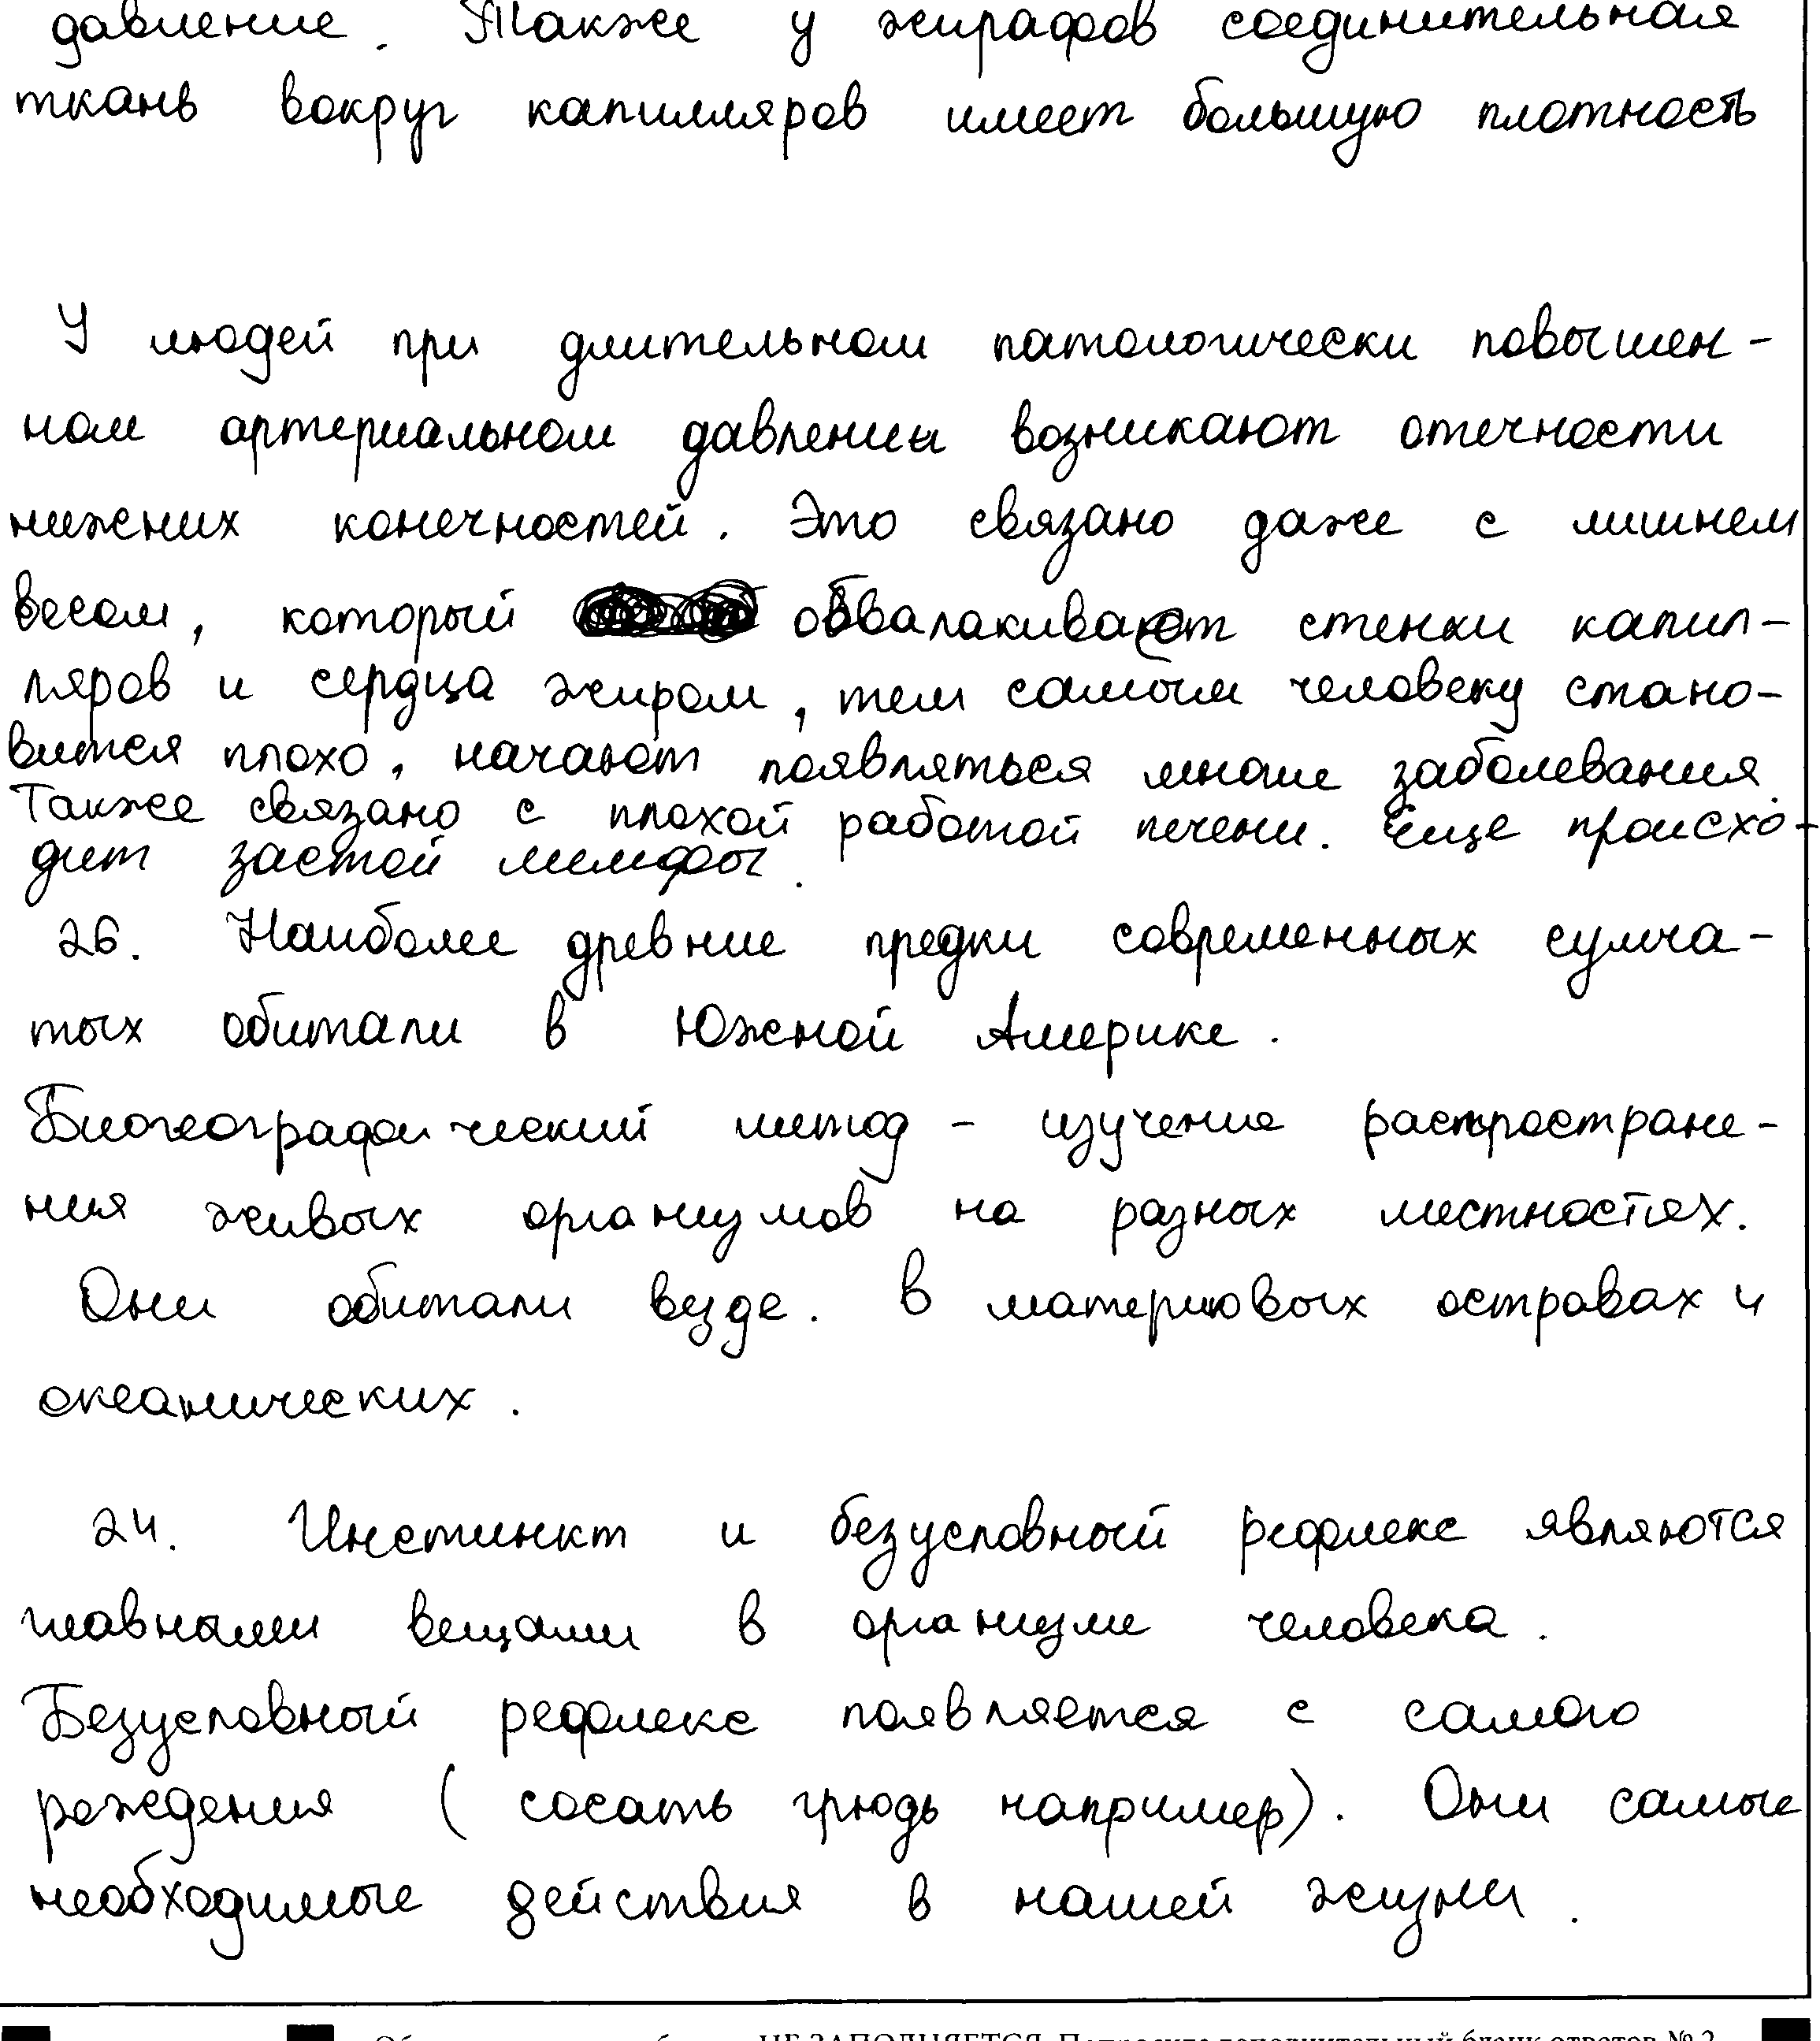 давление. Также у жирафов соединительная
ткань вокруг капилляров имеет большую плотность
У людей при длительном патологически повышен-
ном артериальном давлении возникают отечности
нижних конечностей. Это связано даже с лишнем
весом, который обвалакивает стенки капил-
ляров и сердца жиром, тем самым человеку стано-
вится плохо, начают появляться многие заболевания.
Также связано с плохой работой печени. Еще происхо-
дит застой лимфы.
26. Наиболее древние предки современных сумча-
тых обитали в Южной Америке.
Биогеографический метод - изучение распростране-
ния живых организмов на разных местностях.
Они обитали везде. В материковых островах и
океанических.
24. Инстинкт и безусловный рефлекс являются
главными вещами в организме человека.
Безусловный рефлекс появляется с самого
рождения (сосать грюдь например). Они самые
необходимые действия в нашей жизни.
НЕ ЗАПОЛНЯЕТСЯ. Попросите дополнительный бланк ответов № 2